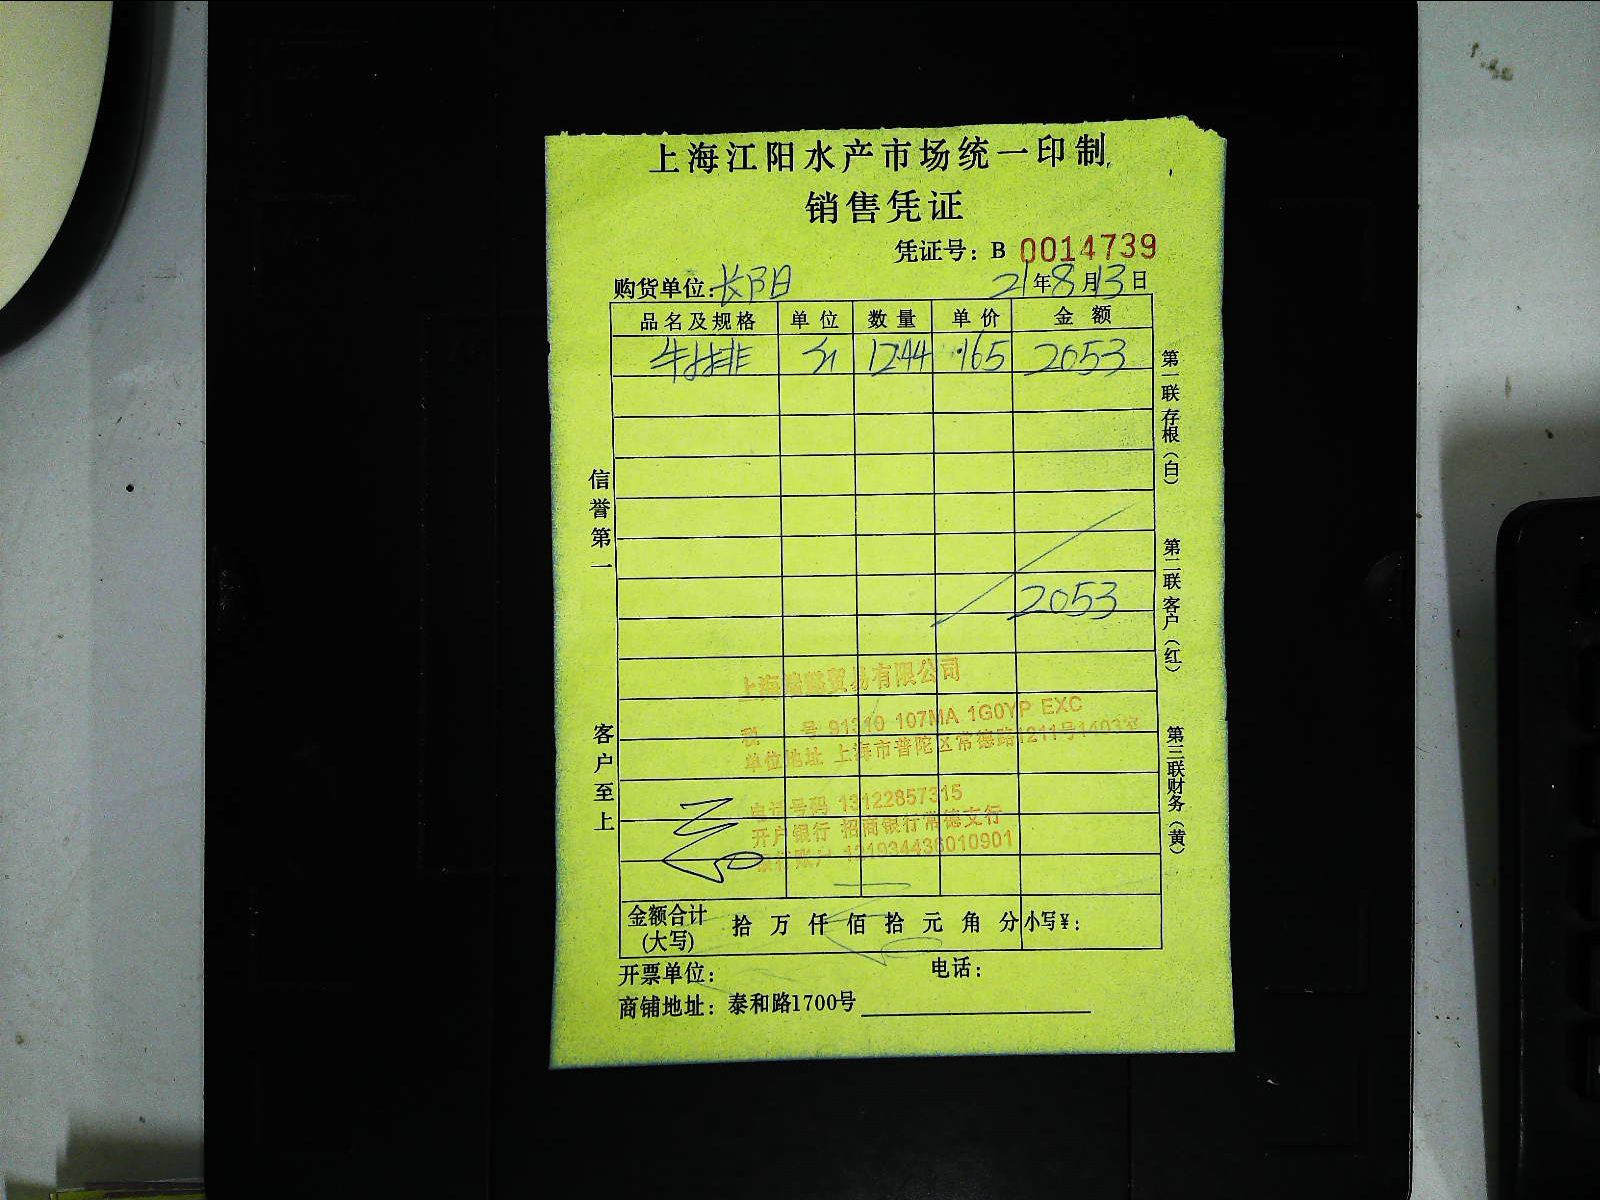 上海江阳水产市场统一印制
销售凭证
凭证号：B 0014739
购货单位：长阳 21年8月13日
品名及规格 单位 数量 单价 金额
牛排 斤 12.44 165 2053
2053
信誉第一
客户至上
第一联存根（白）
第二联客户（红）
第三联财务（黄）
上海 贸易有限公司
税 号 91310 107MA 1G0YP EXC
单位地址 上海市普陀区常德路1211号1403室
电话号码 13122857315
开户银行 招商银行常德支行
银行账户 121934436010901
金额合计(大写) 拾 万 仟 佰 拾 元 角 分 小写¥：
开票单位： 电话：
商铺地址：泰和路1700号